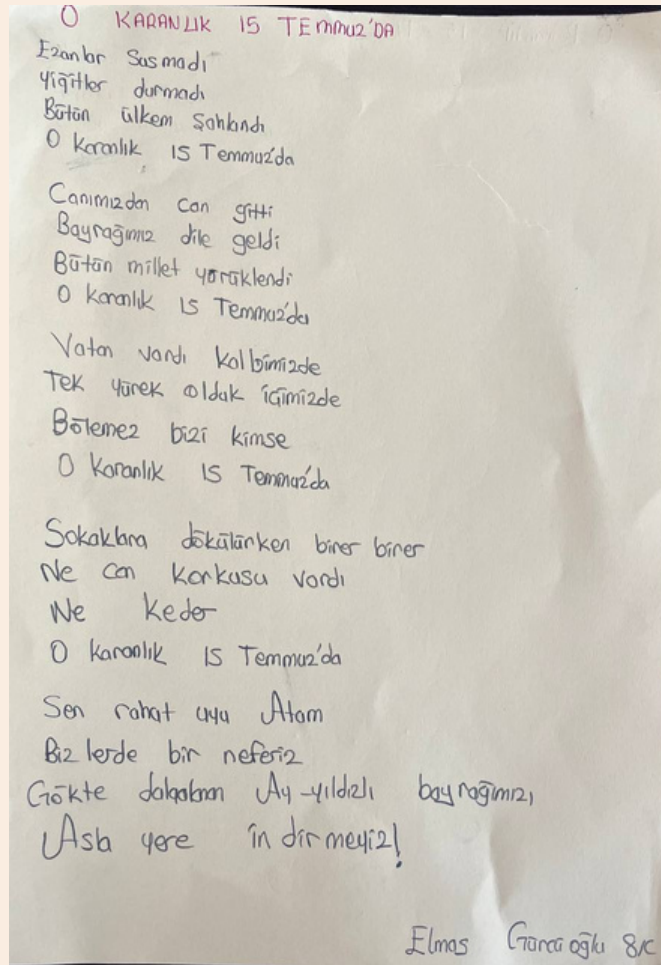 O KARANLIK 15 TEMMUZ'DA
Ezanlar Susmadı
Yiğitler durmadı
Bütün ülkem Şahlandı
O Karanlık 15 Temmuz'da
Canımızdan can gitti
Bayrağımız dile geldi
Bütün millet yürüklendi
O Karanlık 15 Temmuz'da
Vatan vardı kalbimizde
Tek yürek olduk içimizde
Bölemez bizi kimse
O Karanlık 15 Temmuz'da
Sokaklara dökülürken birer birer
Ne can korkusu vardı
Ne keder
O karanlık 15 Temmuz'da
Sen rahat uyu Atam
Bizlerde bir neferiz
Gökte dalgalanan Ay-yıldızlı bayrağımızı,
Asla yere indirmeyiz!
Elmas 8/C